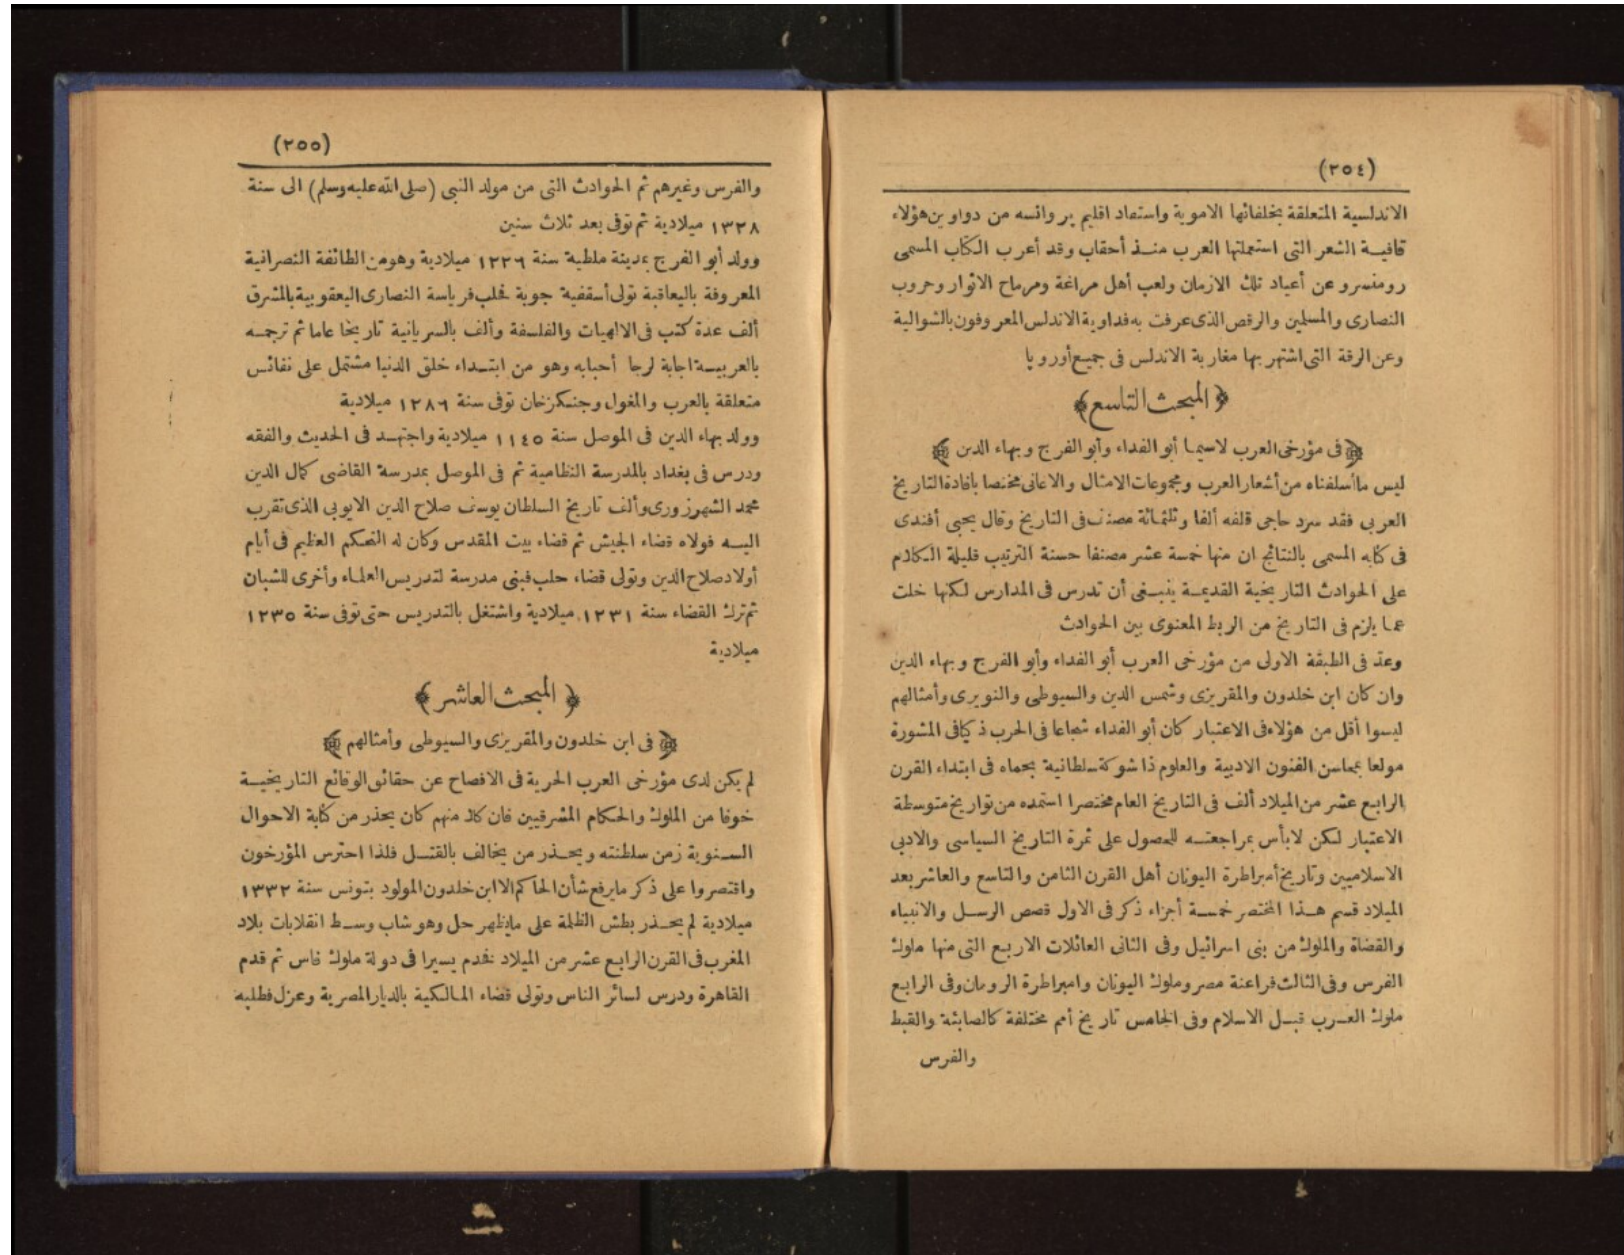 (٢٥٤)
الاندلسية المتعلقة بخلفائها الاموية واستفاد اقليم پروانسه من دواوين هؤلاء
قافيـة الشعر التى استعملتها العرب منـذ أحقاب وقد أعرب الكتاب المسمى
رومنسرو عن أعياد تلك الازمان ولعب أهل مراغة ومرماح الاثوار وحروب
النصارى والمسلمين والرقص الذى عرفت به فداوية الاندلس المعروفون بالشوالية
وعن الرقة التى اشتهر بها مغاربة الاندلس فى جميع أوروپا
﴿ المبحث التاسع ﴾
﴿ فى مؤرخى العرب لاسيما أبو الفداء وأبو الفرج وبهاء الدين ﴾
ليس ما أسلفناه من أشعار العرب ومجموعات الامثال والاغانى مختصا بافادة التاريخ
العربى فقد سرد حاجى قلفه ألفا وثلثمائة مصنف فى التاريخ وقال يحيى أفندى
فى كتابه المسمى بالنتائج ان منها خمسة عشر مصنفا حسنة الترتيب قليلة الكلام
على الحوادث التاريخية القديمـة ينبـغى أن تدرس فى المدارس لكنها خلت
عما يلزم فى التاريخ من الربط المعنوى بين الحوادث
وعدّ فى الطبقة الاولى من مؤرخى العرب أبو الفداء وأبو الفرج وبهاء الدين
وان كان ابن خلدون والمقريزى وشمس الدين والسيوطى والنويرى وأمثالهم
ليسوا أقل من هؤلاء فى الاعتبار كان أبو الفداء شجاعا فى الحرب ذكيا فى المشورة
مولعا بمحاسن الفنون الادبية والعلوم ذا شوكة سلطانية بحماه فى ابتداء القرن
الرابع عشر من الميلاد ألف فى التاريخ العام مختصرا استمده من تواريخ متوسطة
الاعتبار لكن لا بأس بمراجعتـه للحصول على ثمرة التاريخ السياسى والادبى
الاسلاميين وتاريخ أمبراطرة اليونان أهل القرن الثامن والتاسع والعاشر بعد
الميلاد قسم هـذا المختصر خمسـة أجزاء ذكر فى الاول قصص الرسـل والانبياء
والقضاة والملوك من بنى اسرائيل وفى الثانى العائلات الاربع التى منها ملوك
الفرس وفى الثالث فراعنة مصر وملوك اليونان وامبراطرة الرومان وفى الرابع
ملوك العـرب قبـل الاسلام وفى الخامس تاريخ أمم مختلفة كالصابئة والقبط
والفرس
(٢٥٥)
والفرس وغيرهم ثم الحوادث التى من مولد النبى (صلى الله عليه وسلم) الى سنة
١٣٢٨ ميلادية ثم توفى بعد ثلاث سنين
وولد أبو الفرج بمدينة ملطية سنة ١٢٢٦ ميلادية وهو من الطائفة النصرانية
المعروفة باليعاقبة تولى أسقفية جوبة فحلب فرياسة النصارى اليعقوبية بالمشرق
ألف عدة كتب فى الالهيات والفلسفة وألف بالسريانية تاريخا عاما ثم ترجمـه
بالعربيـة اجابة لرجا أحبابه وهو من ابتـداء خلق الدنيا مشتمل على نفائس
متعلقة بالعرب والمغول وجنكزخان توفى سنة ١٢٨٦ ميلادية
وولد بهاء الدين فى الموصل سنة ١١٤٥ ميلادية واجتهـد فى الحديث والفقه
ودرس فى بغداد بالمدرسة النظامية ثم فى الموصل بمدرسة القاضى كمال الدين
محمد الشهرزورى وألف تاريخ السلطان يوسف صلاح الدين الايوبى الذى تقرب
اليـه فولاه قضاء الجيش ثم قضاء بيت المقدس وكان له التحكم العظيم فى أيام
أولاد صلاح الدين وتولى قضاء حلب فبنى مدرسة لتدريس العلماء وأخرى للشبان
ثم ترك القضاء سنة ١٢٣١ ميلادية واشتغل بالتدريس حتى توفى سنة ١٢٣٥
ميلادية
﴿ المبحث العاشر ﴾
﴿ فى ابن خلدون والمقريزى والسيوطى وأمثالهم ﴾
لم يكن لدى مؤرخى العرب الحرية فى الافصاح عن حقائق الوقائع التاريخيـة
خوفا من الملوك والحكام المشرقيين فان كلا منهم كان يحذر من كتابة الاحوال
السـنوية زمن سلطنته ويحـذر من يخالف بالقتـل فلذا احترس المؤرخون
واقتصروا على ذكر ما يرفع شأن الحاكم الا ابن خلدون المولود بتونس سنة ١٣٣٢
ميلادية لم يحـذر بطش الظلمة على ما يظهر حل وهو شاب وسـط انقلابات بلاد
المغرب فى القرن الرابع عشر من الميلاد فخدم يسيرا فى دولة ملوك فاس ثم قدم
القاهرة ودرس لسائر الناس وتولى قضاء المالكية بالديار المصرية وعزل فطلبه